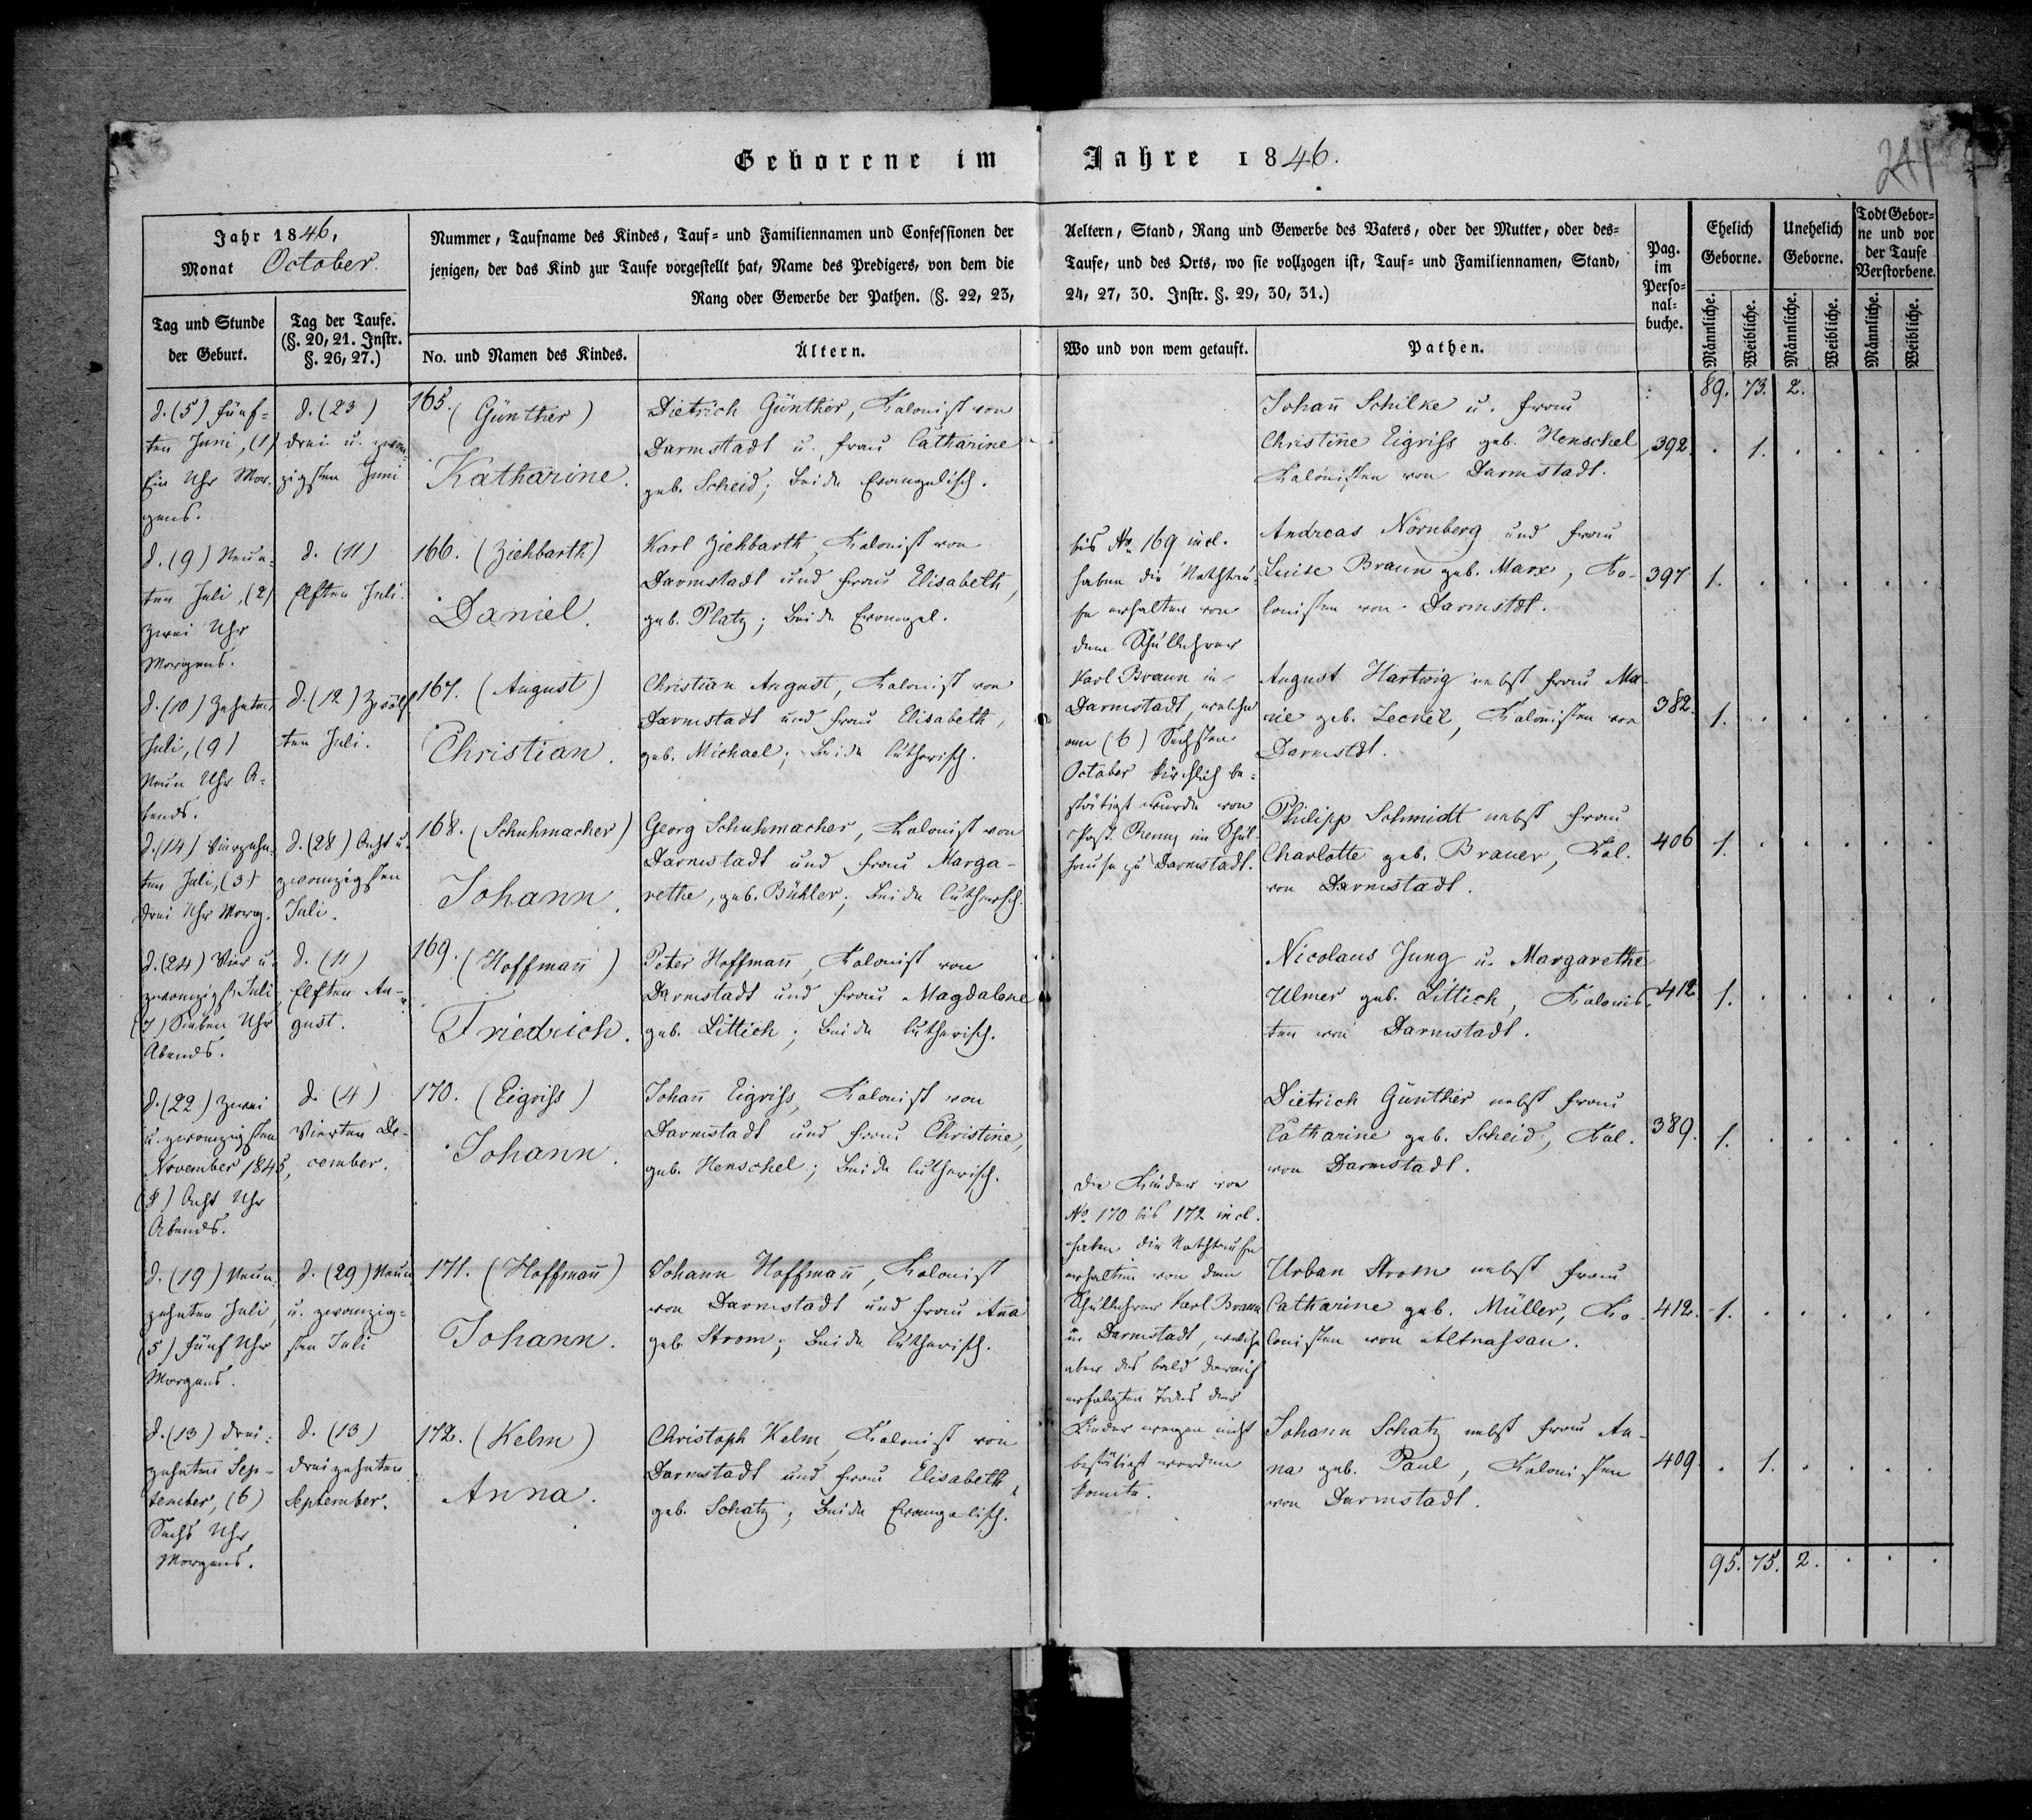 Geborene im Jahre 1846.
241
Jahr 1846,
Monat October.
Tag und Stunde
der Geburt.
Tag der Taufe.
(§. 20, 21. Instr.
§. 26, 27.)
Nummer, Taufname des Kindes, Tauf= und Familiennamen und Confessionen der
jenigen, der das Kind zur Taufe vorgestellt hat, Name des Predigers, von dem die
Rang oder Gewerbe der Pathen. (§. 22, 23,
No. und Namen des Kindes.
Ältern.
Aeltern, Stand, Rang und Gewerbe des Vaters, oder der Mutter, oder des=
Taufe, und des Orts, wo sie vollzogen ist, Tauf= und Familiennamen, Stand,
24, 27, 30. Instr. §. 29, 30, 31.)
Wo und von wem getauft.
Pathen.
Pag.
im
Perso=
nal=
buche.
Ehelich
Geborne.
Unehelich
Geborne.
Todt Gebor=
ne und vor
der Taufe
Verstorbene.
Männliche.
Weibliche.
Männliche.
Weibliche.
Männliche.
Weibliche.
89. 73. 2.
d. (5) Fünf=
ten Juni, (1)
Ein Uhr Mor-
gens.
d. (23)
drei u. zwan-
zigsten Juni
165. (Günther)
Katharine.
Dietrich Günther, Kolonist von
Darmstadt u. Frau Catharine
geb. Scheid; beide Evangelisch.
Johañ Schilke u. Frau
Christine Eigriss geb. Henschel
Kolonisten von Darmstadt.
392. . 1. . . . .
d. (9) Neun-
ten Juli, (2)
Zwei Uhr
Morgens.
d. (11)
Elften Juli.
166. (Ziehbarth)
Daniel.
Karl Ziehbarth, Kolonist von
Darmstadt und Frau Elisabeth,
geb. Platz; beide Evangel.
bis No 169 incl.
haben die Nothtau-
fe erhalten von
dem Schullehrer
Karl Braun in
Darmstadt, welche
am (6) Sechsten
October kirchlich be-
stätigt wurde von
Past. Pheny im Schul-
hause zu Darmstadt.
Andreas Nörnberg und Frau
Luise Braun geb. Marx, Ko-
lonisten von Darmstdt.
397 1. . . . . .
d. (10) Zehnten
Juli, (9)
Neun Uhr A-
bends.
d. (12) Zwölf-
ten Juli.
167. (August)
Christian.
Christian August, Kolonist von
Darmstadt und Frau Elisabeth,
geb. Michael; beide lutherisch.
August Hartwig nebst Frau Ma-
rie geb. Zeckel, Kolonisten von
Darmstdt.
382. 1. . . . . .
d. (14) Vierzehn-
ten Juli, (3)
drei Uhr Morg.
d. (28) Acht u.
zwanzigsten
Juli.
168. (Schuhmacher)
Johann.
Georg Schuhmacher, Kolonist von
Darmstadt und Frau Marga-
rethe, geb. Bühler; beide lutherisch.
Philipp Schmidt nebst Frau
Charlotte geb. Brauer, Kol.
von Darmstadt.
406 1. . . . . .
d. (24) Vier u.
zwanzigst. Juli
(7) Sieben Uhr
Abends.
d. (11)
Elften Au-
gust.
169. (Hoffmañ)
Friedrich.
Peter Hoffmañ, Kolonist von
Darmstadt und Frau Magdalene
geb. Littich; beide lutherisch.
Nicolaus Jung u. Margarethe
Ulmer geb. Littich, Kolonis-
ten von Darmstadt.
412 1. . . . . .
d. (22) Zwei
u. zwanzigsten
November 1845,
(8) Acht Uhr
Abends.
d. (4)
Vierten De-
cember.
170. (Eigriss)
Johann.
Johañ Eigriss, Kolonist von
Darmstadt und Frau Christine,
geb. Henschel; beide lutherisch.
Die Kinder von
No 170 bis 172 incl.
haben die Nothtaufe
erhalten von dem
Schullehrer Karl Braun
in Darmstadt, welche
aber des bald darauf
erfolgten Todes der
Kinder wegen nicht
bestätigt werden
konnte.
Dietrich Günther nebst Frau
Catharine geb. Scheid, Kol.
von Darmstadt.
389. 1. . . . . .
d. (19) Neun-
zehnten Juli,
(5) Fünf Uhr
Morgens.
d. (29) Neun
u. zwanzig=
sten Juli
171. (Hoffmañ)
Johann.
Johann Hoffmañ, Kolonist
von Darmstadt und Frau Aña
geb. Strom; beide lutherisch.
Urban Strom nebst Frau
Catharine geb. Müller, Ko-
lonisten von Altnassau.
412. 1. . . . . .
d. (13) drei-
zehnten Sep-
tember, (6)
Sechs Uhr
Morgens.
d. (13)
dreizehnten
September.
172. (Kelm)
Anna.
Christoph Kelm, Kolonist von
Darmstadt und Frau Elisabeth,
geb. Schatz; beide Evangelisch.
Johann Schatz nebst Frau An-
na geb. Paul, Kolonisten
von Darmstadt.
409. . 1. . . . .
95. 75. 2. . . .